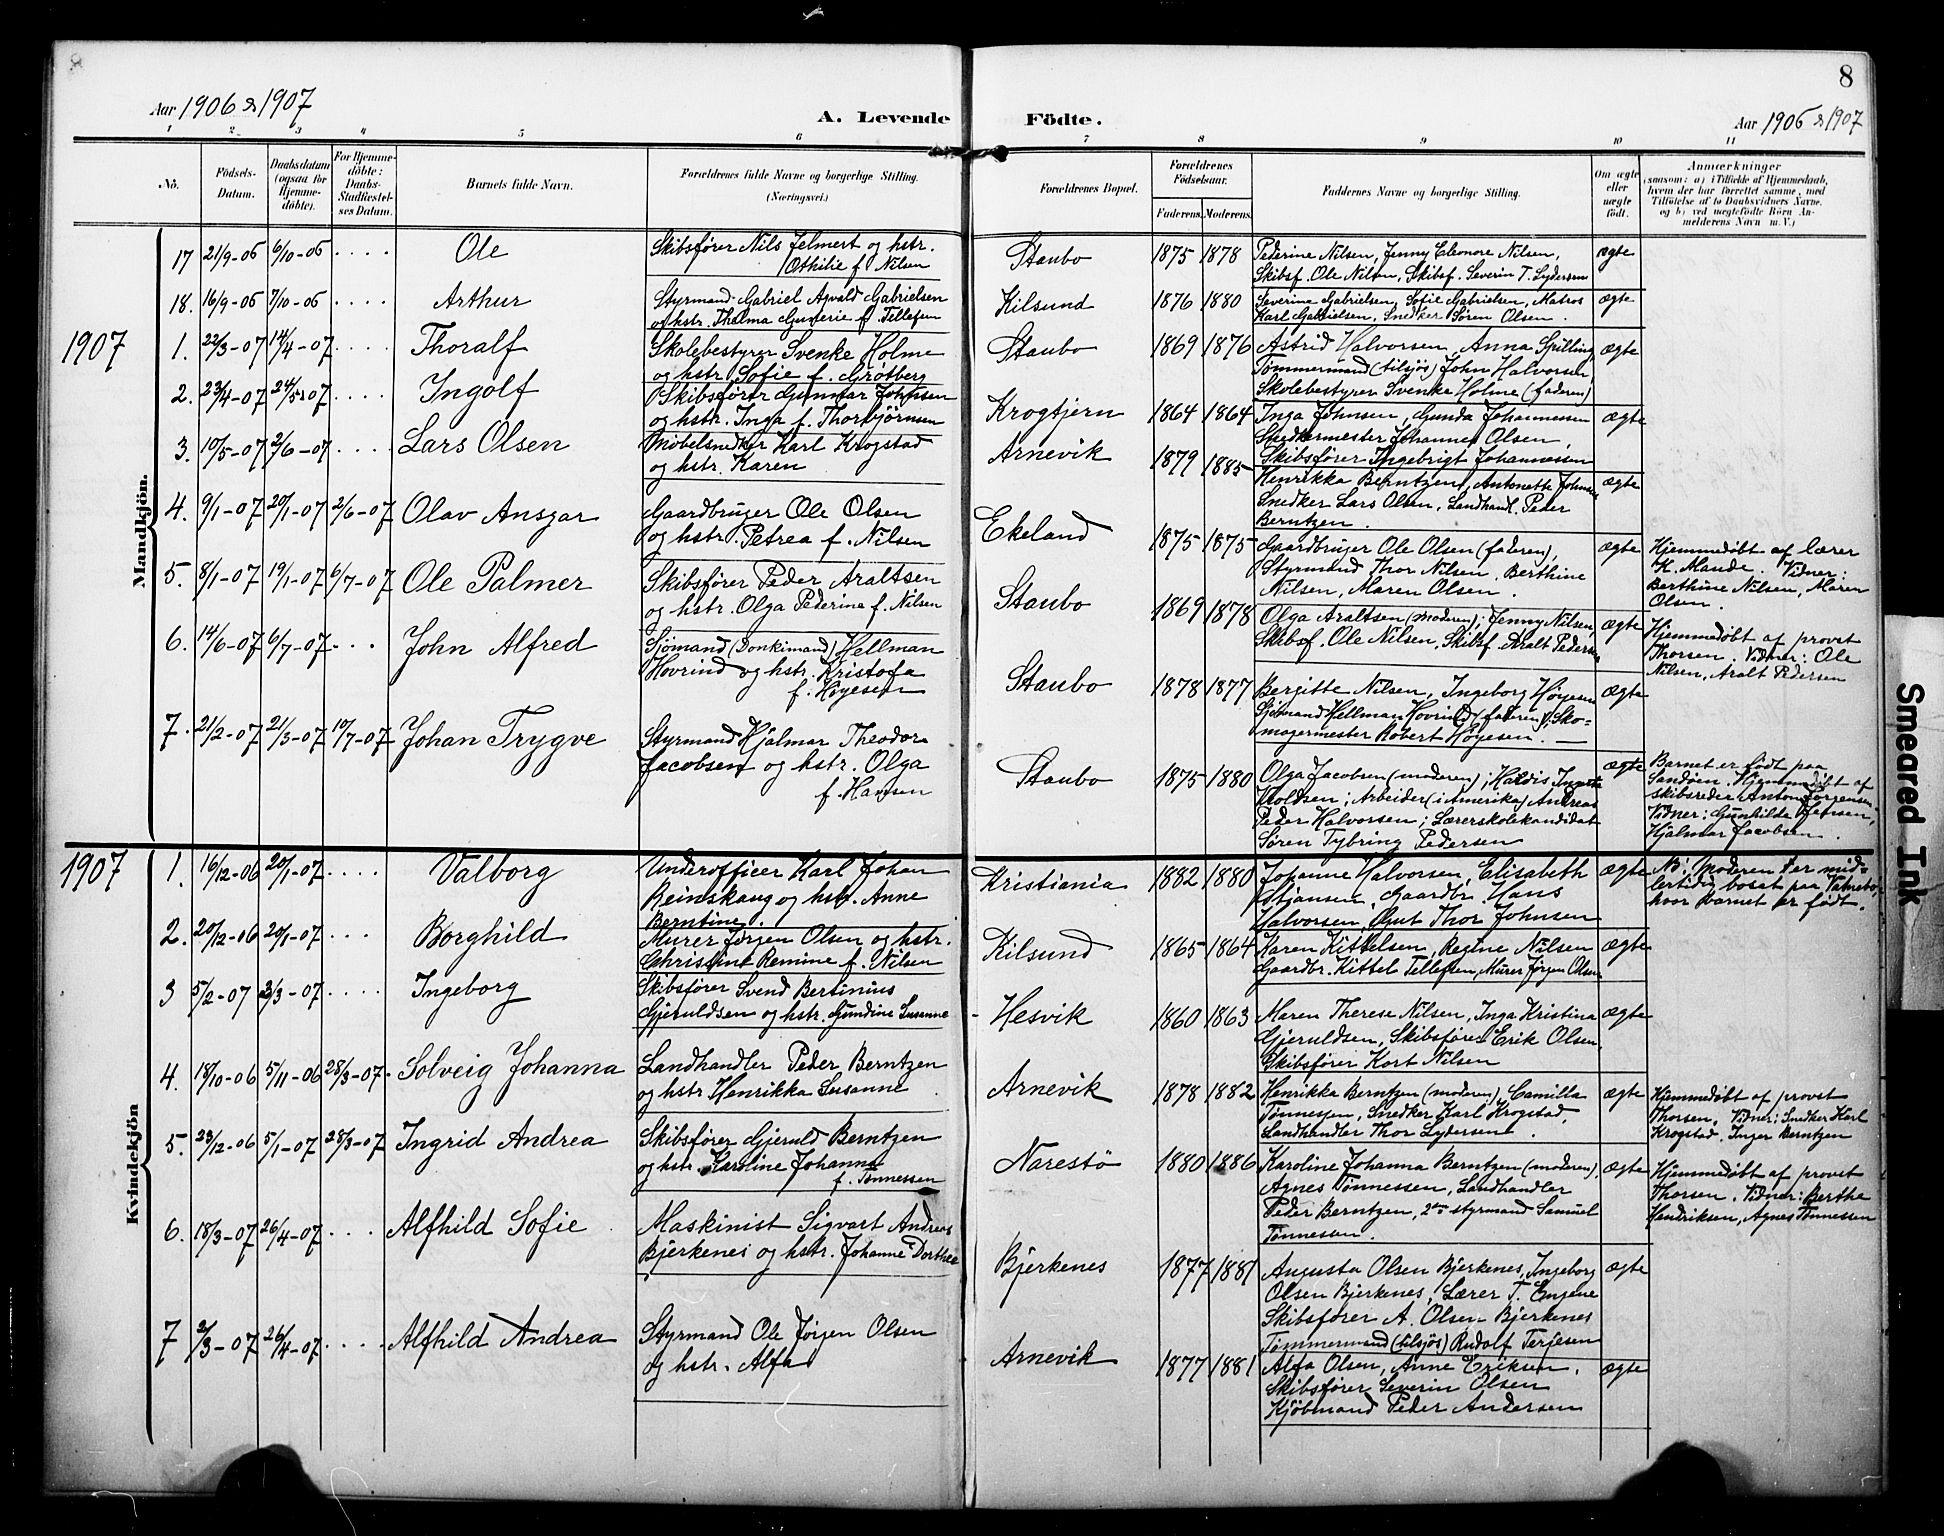 8
Aar 1906 & 1907
A. Levende Födte.
Aar 1906 & 1907
1 2 3 4 5 6 7 8 9 10 11
No.
Födsels-Datum.
Daabsdatum (ogsaa for Hjemme-döbte).
For Hjemme-döbte: Daabs-Stadfæstel-ses Datum.
Barnets fulde Navn.
Forældrenes fulde Navne og borgerlige Stilling. (Næringsvei.)
Forældrenes Bopæl.
Forældrenes Födselsaar.
Faderens. Moderens.
Faddernes Navne og borgerlige Stilling.
Om ægte eller uægte födt.
Anmærkninger
(saasom: a) i Tilfælde af Hjemmedaab, hvem der har forrettet samme, med Tilföielse af to Daabsvidners Navne, og b) ved uægtefödte Börn An-melderens Navn m. V.)
Mandkjön.
17 21/9-06 6/10-06 . . . . Ole
Skibsfører Nils Jelmert og hstr.
Othilie f. Nilsen
Staubo 1875 1878
Pederine Nilsen, Jenny Eleonore Nilsen,
Skibsf. Ole Nilsen, Skibsf. Severin T. Lydersen
ægte
18. 16/9-06 7/10-06 . . . . Arthur
Styrmand Gabriel Agvald Gabrielsen
og hstr. Thalma Gunerie f. Tellefsen
Kilsund 1876 1880
Severine Gabrielsen, Sofie Gabrielsen, Matros
Karl Gabrielsen, Snedker Søren Olsen.
ægte
1907
1. 22/3-07 14/4-07 . . . . Thoralf
Skolebestyrer Svenke Holme
og hstr. Sofie f. Grøtberg
Staubo 1869 1876
Astrid Halvorsen, Anna Spilling,
Tømmermand (tilsjøs) John Halvorsen
Skolebestyrer Svenke Holme (faderen)
ægte
2. 23/4-07 24/5-07 . . . . Ingolf
Skibsfører Gunnar Johnsen
og hstr. Inga f. Thorbjörnsen
Krogtjern 1864 1864
Inga Johnsen, Gunda Johannessen
Snedkermester Johannes Olsen,
Skibsfører Ingebrigt Johannessen
ægte
3. 10/5-07 2/6-07 . . . . Lars Olsen
Møbelsnedker Karl Krogstad
og hstr. Karen
Arnevik 1879 1885
Henrikka Berntzen, Antonette Johnsen
Snedker Lars Olsen, Landhandl. Peder
Berntzen.
ægte
4. 9/1-07 20/1-07 2/6-07 Olav Ansgar
Gaardbruger Ole Olsen
og hstr. Petrea f. Nilsen
Ekeland 1875 1875
Gaardbruger Ole Olsen (faderen),
Styrmand Thor Nilsen, Berthine
Nilsen, Maren Olsen.
ægte
Hjemmedøbt af lærer
K. Mande. Vidner:
Berthine Nilsen, Maren
Olsen.
5. 8/1-07 19/1-07 6/7-07 Ole Palmer
Skibsfører Peder Araltsen
og hstr. Olga Pederine f. Nilsen
Staubo 1869 1878
Olga Araltsen (moderen); Jenny Nilsen,
Skibsf. Ole Nilsen, Skibsf. Aralt Pedersen
ægte
Hjemmedøbt af provst
Thorsen. Vidner: Ole
Nilsen, Aralt Pedersen
6. 14/6-07 6/7-07 . . . John Alfred
Sjömand (Donkimand) Hellman
Hovrind og hstr. Kristofa
f. Høyesen
Staubo 1878 1877
Bergitte Nilsen, Ingeborg Høyesen
Sjömand Hellman Hovrind (faderen), Sko-
magermester Robert Høyesen.
ægte
7. 21/2-07 21/3-07 10/7-07 Johan Trygve
Styrmand Hjalmar Theodor
Jacobsen og hstr. Olga
f. Hansen
Staubo 1875 1880
Olga Jacobsen (moderen); Haldis Ingvalda
Knoldsen; Arbeider (i Amerika) Andreas
Peder Halvorsen; Lærerskolekandidat
Søren Tybring Pedersen
ægte
Barnet er født paa
Sandøen. Hjemmedøbt af
skibsreder Anton Jørgensen.
Vidner: Gunhilde Hansen,
Hjalmar Jacobsen.
1907
Kvindekjön
1. 16/12-06 20/1-07 . . . . Valborg
Underofficer Karl Johan
Reinskaug og hstr. Anne
Berntine.
Kristiania 1882 1880
Johanne Halvorsen, Elisabeth
Stjansen, Gaardbr. Hans
Halvorsen, Gut Thor Johnsen
ægte
NB: Moderen er mid-
lertidig bosat paa Vatnebo,
hvor barnet er født.
2. 20/12-06 20/1-07 . . . Borghild
Murer Jørgen Olsen og hstr.
Christine Remine f. Nilsen
Kilsund 1865 1864
Karen Kittelsen, Regine Nilsen
Gaardbr. Kittel Tellefsen, Murer Jørgen Olsen
ægte
3 5/2-07 3/3-07 . . . . Ingeborg
Skibsfører Svend Bertinius
Gjeruldsen og hstr. Gundine Susanne
Hesvik 1860 1863
Maren Therese Nilsen, Inga Kristina
Gjeruldsen, Skibsfører Erik Olsen,
Skibsfører Kort Nilsen
ægte
4. 18/10-06 5/11-06 28/3-07 Solveig Johanna
Landhandler Peder Berntzen
og hstr Henrikka Susanne
Arnevik 1878 1882
Henrikka Berntzen (moderen), Camilla
Tønnessen, Snedker Karl Krogstad,
Landhandler Thor Lydersen.
ægte
Hjemmedøbt af provst
Thorsen, Vidner: Snedker Karl
Krogstad, Inger Berntzen
5. 23/12-06 5/1-07 28/3-07 Ingrid Andrea
Skibsfører Gjeruld Berntzen
og hstr. Karoline Johanna
f. Tønnessen
Narestö 1880 1886
Karoline Johanna Berntzen (moderen),
Agnes Tønnessen, Landhandler
Peder Berntzen, 2den styrmand Samuel
Tønnessen.
ægte
Hjemmedøbt af provst
Thorsen. Vidner: Berthe
Hendriksen, Agnes Tønnessen
6. 18/3-07 26/4-07 . . . Alfhild Sofie
Maskinist Sigvart Andreas
Bjerkenes og hstr. Johanne Dorthea
Bjerkenes 1877 1881
Augusta Olsen Bjerkenes, Ingeborg
Olsen Bjerkenes, Lærer T. Engene
Skibsfører A. Olsen Bjerkenes
Tømmermand (tilsjøs) Rudolf Terjesen
ægte
7 2/3-07 26/4-07 . . . . Alfhild Andrea
Styrmand Ole Jørgen Olsen
og hstr. Alfa
Arnevik 1877 1881
Alfa Olsen, Anne Eriksen,
Skibsfører Severin Olsen
Kjøbmand Peder Andersen
ægte
Smeared Ink